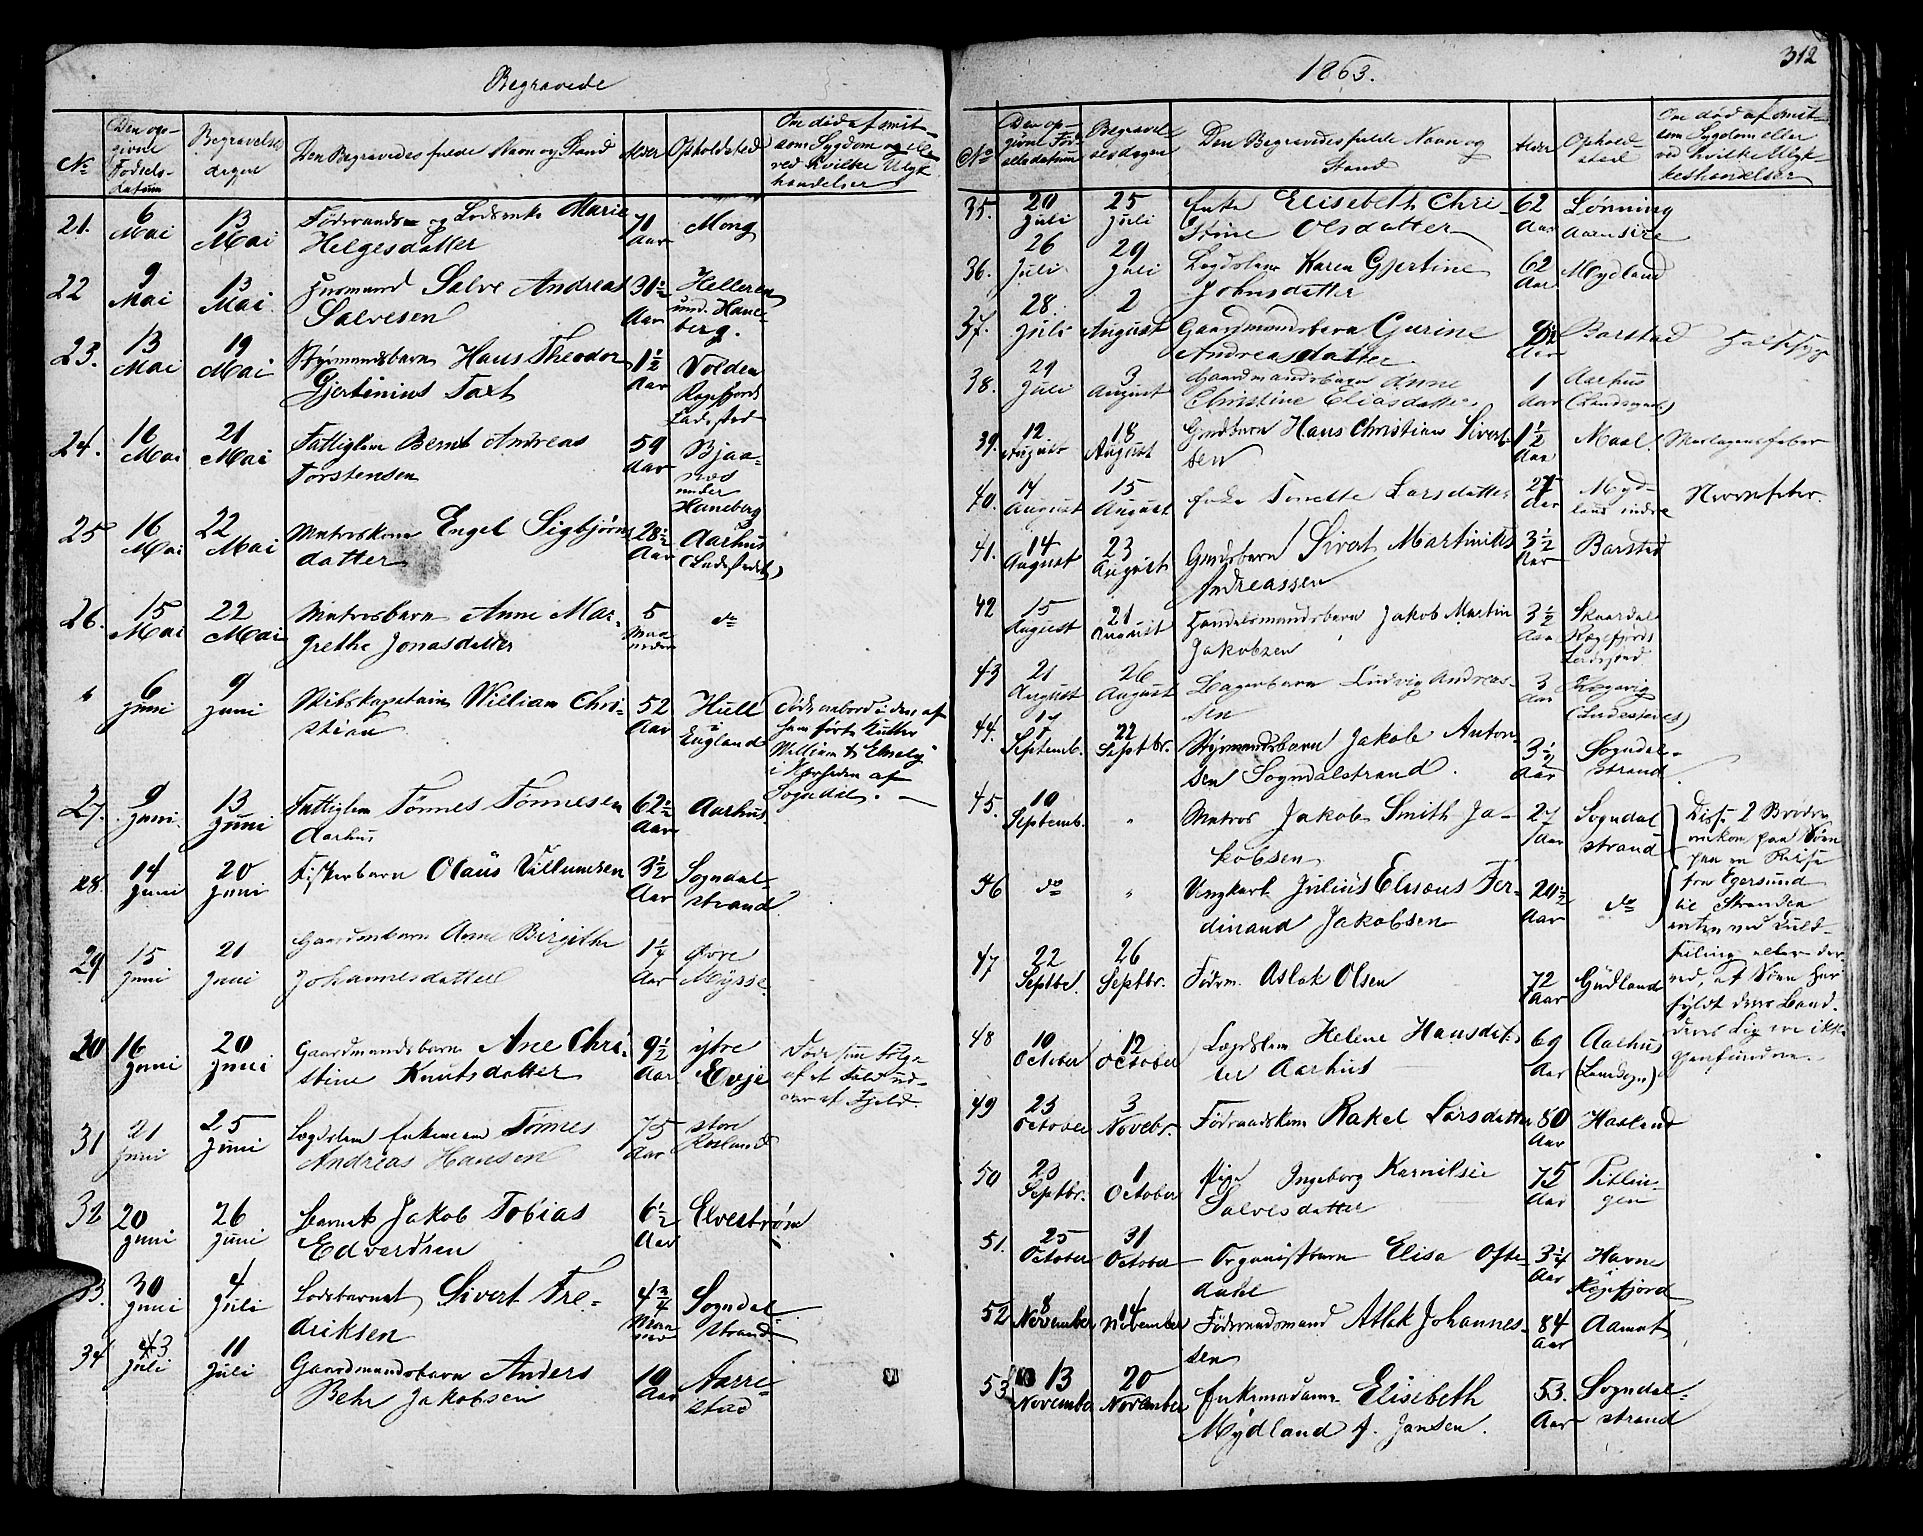 Begravede
No
Den op-
givne
Fødsels-
datum
Begravelses
dagene
Den Begravedes fulde Navn og Stand
Alder
Opholdsted
Om død af smit-
som Sygdom og eller
ved hvilke Ulyk-
handelser
21.
6
Mai
13
Mai
Føderaads- og Lodsenke Marie
Helgesdatter
71
Aar
Mong
22
9
Mai
13
Mai
Husmand Salve Andreas
Salvesen
31½
Aar
Helleren
und. Hane-
berg.
23.
13
Mai
19
Mai
Styrmandsbarn Hans Theodor
Gjertinius Taxt
1½
Aar
Volden
Rægefjords
Ladested
24.
16
Mai
21
Mai
Fattiglem Bernt Andreas
Torstensen
59
Aar
Bjaa-
næs
under
Haneberg
25
16
Mai
22
Mai
Matroskone Engel Sigbjørns
datter
28½
Aar
Aarhus
(Ladestedet)
26.
15
Mai
22
Mai
Matrosbarn Anne Mar-
grethe Jonasdatter
5
Maa
neder
do
6
Juni
9
Juni
Skibskapitain William Chri-
stian
52
Aar
Hull
i
England
Døde ombord i den af
ham førte Kutter
William & Emely
i Nærheden af
Sogndal.
27.
9
Juni.
13
Juni
Fattiglem Tønnes Tønnesen
Aarhus
62½
Aar
Aarhus.
28.
14
Juni
20
Juni
Fiskerbarn Olaus Villumsen
3½
Aar
Sogndal-
strand
29
15
Juni
21
Juni
Gaardmbarn Anne Birgithe
Johannesdatter
1¼
Aar
Øvre
Mysse.
30
16
Juni
20
Juni
Gaardmandsbarn Ane Chri-
stine Knutsdatter
9½
Aar
ytre
Evje
Døde som Følge
af et Fald ud-
over et Fjeld.
31
21
Juni
25
Juni
Lægdslem Enkemand Tønnes
Andreas Hansen
75
Aar
store
Rosland
32
20
Juni
26
Juni
Barnet Jakob Tobias
Edverdsen
6½
Aar
Elvestrøm
33.
30
Juni
4
Juli
Lodsbarnet Sivert Fre-
driksen
4¾
Maa
neder
Sogndal
strand
34
3
Juli
11
Juli
Gaardmandsbarn Anders
Behr Jakobsen
10
Aar
Aarre-
stad
1863.
312
No
Den op-
givne Fød-
selsdatum
Begravel-
sesdagen
Den Begravedes fulde Navn og
Stand
Alder
Ophold-
sted
Om død af smit-
som Sygdom eller
ved hvilke Ulyk-
keshændelser
35.
20
Juli
25
Juli
Enke Elisebeth Chri-
stine Olsdatter
62
Aar
Lønning
Aarnsire
36.
26
Juli
29
Juli
Lægdslem Karen Gjertine
Johnsdatter
62
Aar
Mydland
37.
28.
Juli
2
August
Gaardmandsbarn Gurine
Andreasdatter
Aar
Barstad
Halssyge
38.
29
Juli
3
August
Gaardmandsbarn Anne
Christine Eliasdatter
1
Aar
Aarhus
(Landsognet)
39.
12
August
18
August
Gmdbarn Hans Christian Sivert-
sen
1½
Aar
Maal.
40.
14
August
15
August
Enke Tonette Larsdatter
27
Aar
Myd-
land indre
Nervefeber
41.
14
August
23
August
Gmdsbarn Sivert Martinius
Andreassen
3½
Aar
Barstad
42
15
August
21
August
Handelsmandsbarn Jakob Martin
Jakobsen
3½
Aar
Skaardal
Rægefjords
Ladested
43
21
August
26
August
Bagerbarn Ludvig Andreas-
sen
3
Aar
Rægevig
(Ladestedet)
44.
17
Septemb.
22
Septbr.
Styrmandsbarn Jakob Anton-
sen Sogndalstrand.
3½
Aar
Sogndal-
strand
45.
10
Septemb.
"
Matros Jakob Smith Ja-
kobsen
27
Aar
Sogndal
strand
Disse 2 Brødre
omkom paa Søen
paa en Reise
fra Egersund
til Stranden
enten ved Kuld-
seiling eller der-
ved, at Søen har
fyldt dem Baad.
Deres Lig ere ikke
gjenfundne.
46
do
"
Ungkarl Julius Elisæus Fer-
dinand Jakobsen
20½
Aar
do
47
22
Septbr.
26
Septbr.
Føderm. Aslak Olsen
72
Aar
Gudland
48
10
October
12
October
Lægdslem Helene Hansdat-
ter Aarhus
69
Aar
Aarhus
(Landsogn)
49
23
October
3
Novebr.
Føderaadskone Rakel Larsdatter
80
Aar
Hasland
50
23
Septbr.
1
October
Pige Ingeborg Karnilsie
Salvesdatter
75
Aar
Pitlin-
gen
51.
25
October
31
October
Organistbarn Elisa Ofte-
dahl
3¼
Aar
Havne
Rægefjord
52
8
November
14
November
Føderaadsmand Atlak Johannes-
sen
84
Aar
Aamot
53
13
November
20
November
Enkemadame Elisebeth
Mydland f. Jansen.
53.
Aar
Sogndal-
strand